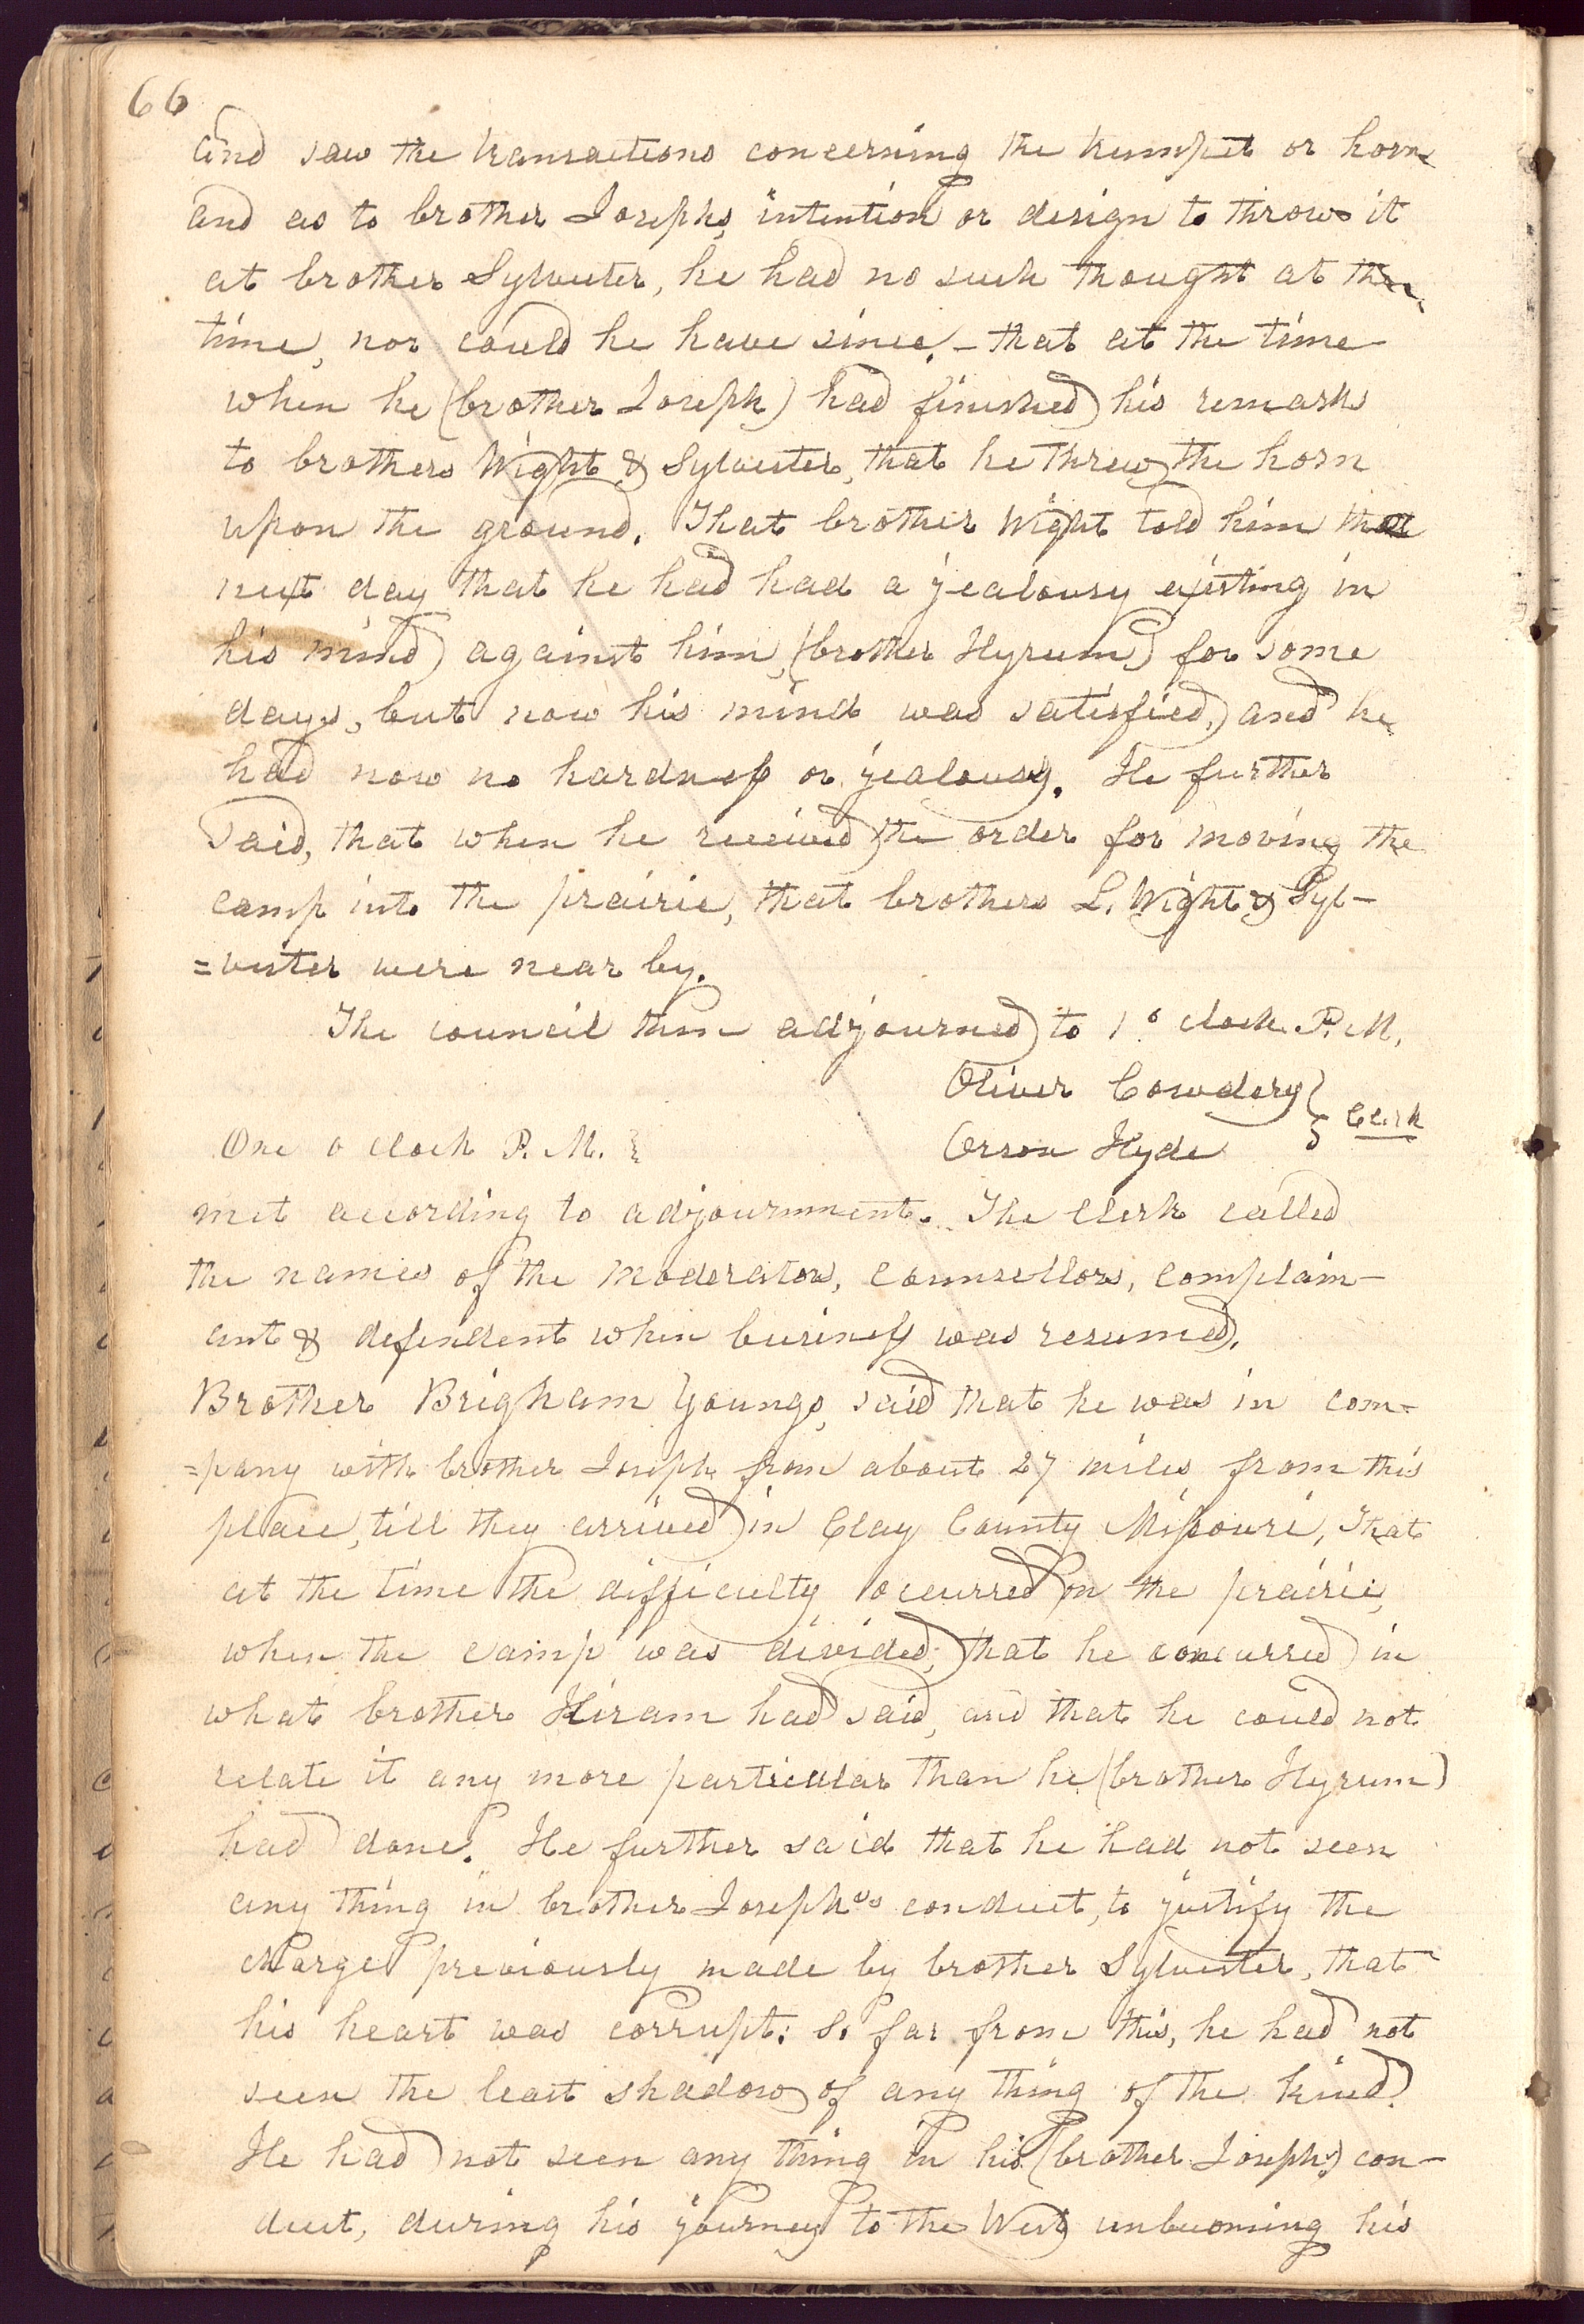 66
and saw the transactions concerning the trumpet or horn
and as to brother Josephs, intention or design to throw it
at brother Sylvester, he had no such thought at the
time, nor could he have since, – that at the time
when he (brother Joseph) had finished his remarks
to brothers Wight & Sylvester, that he threw the horn
upon the ground. That brother Wight told him the
next day that he had had a jealousy existing in
his mind against him, (brother Hyrum) for some
days, but now his mind was satisfied, and he
had now no hardness or jealousy. He further
said, that when he received the order for moving the
camp into the prairie, that brothers L. Wight & Syl-
=vester were near by.
The council then adjourned to 1 o clock P. M.
Oliver Cowdery }
Orson Hyde } Clerk
One o clock P. M. }
met according to adjournment. The clerk called
the names of the moderators, counsellors, complain-
ant & defendent when business was resumed.
Brother Brigham Youngs, said that he was in com-
=pany with brother Joseph from about 27 miles from this
place, till they arrived in Clay County Missouri, That
at the time the difficulty occurred on the prairie,
when the camp was divided, that he concurred in
what brother Hiram had said, and that he could not
relate it any more particular than he (brother Hyrum)
had done. He further said that he had not seen
any thing in brother Joseph's conduct, to justify the
charge previously made by brother Sylvester, that
his heart was corrupt: So far from this, he had not
seen the least shadow of any thing of the kind.
He had not seen any thing in his (brother Joseph's) con-
duct, during his journey to the West unbecoming his